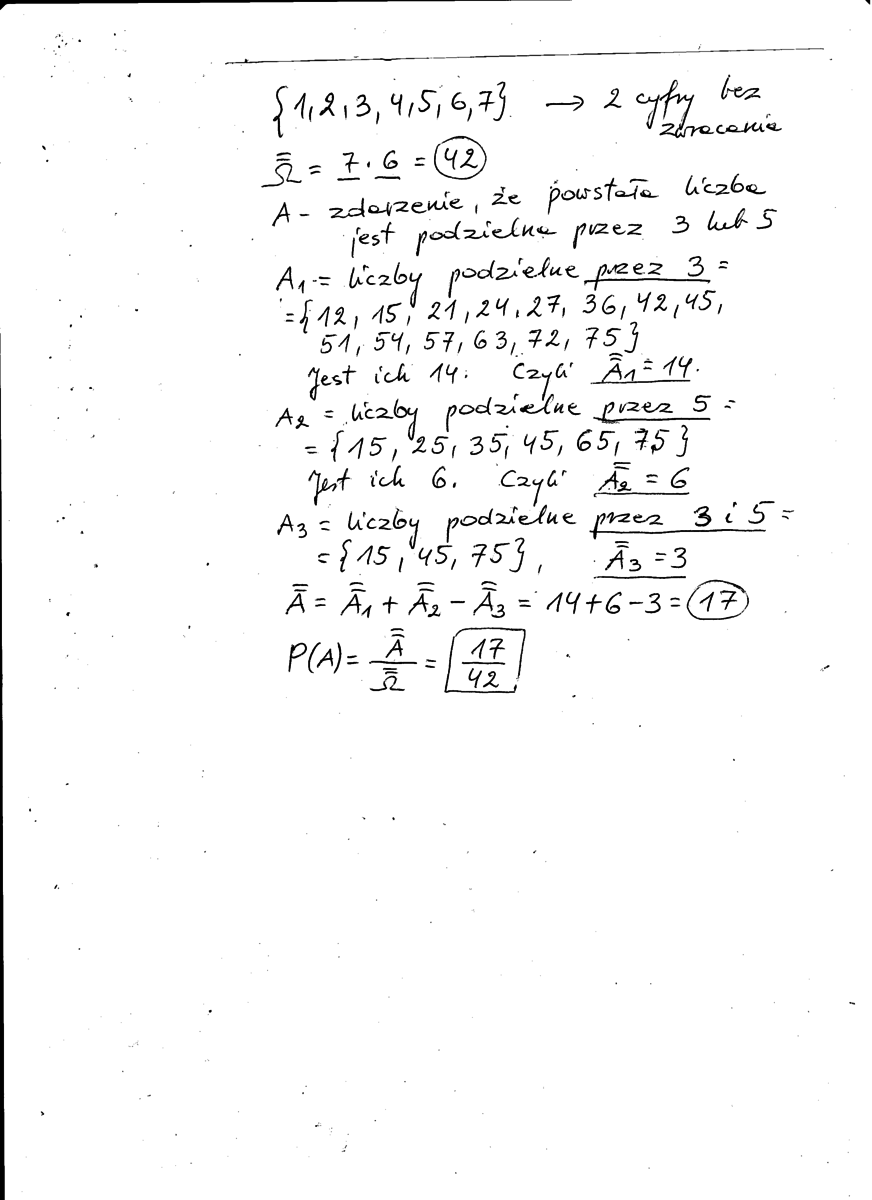 {1,2,3,4,5,6,7} → 2 cyfry bez
zwracania
Ω̿ = 7 · 6 = 42
A - zdarzenie, że powstała liczba
jest podzielna przez 3 lub 5
A₁ = liczby podzielne przez 3 =
= {12, 15, 21, 24, 27, 36, 42, 45,
51, 54, 57, 63, 72, 75}
Jest ich 14. Czyli A̿₁ = 14.
A₂ = liczby podzielne przez 5 =
= {15, 25, 35, 45, 65, 75}
Jest ich 6. Czyli A̿₂ = 6
A₃ = liczby podzielne przez 3 i 5 =
= {15, 45, 75}, A̿₃ = 3
A̿ = A̿₁ + A̿₂ − A̿₃ = 14 + 6 − 3 = 17
P(A) = A̿/Ω̿ = 17/42